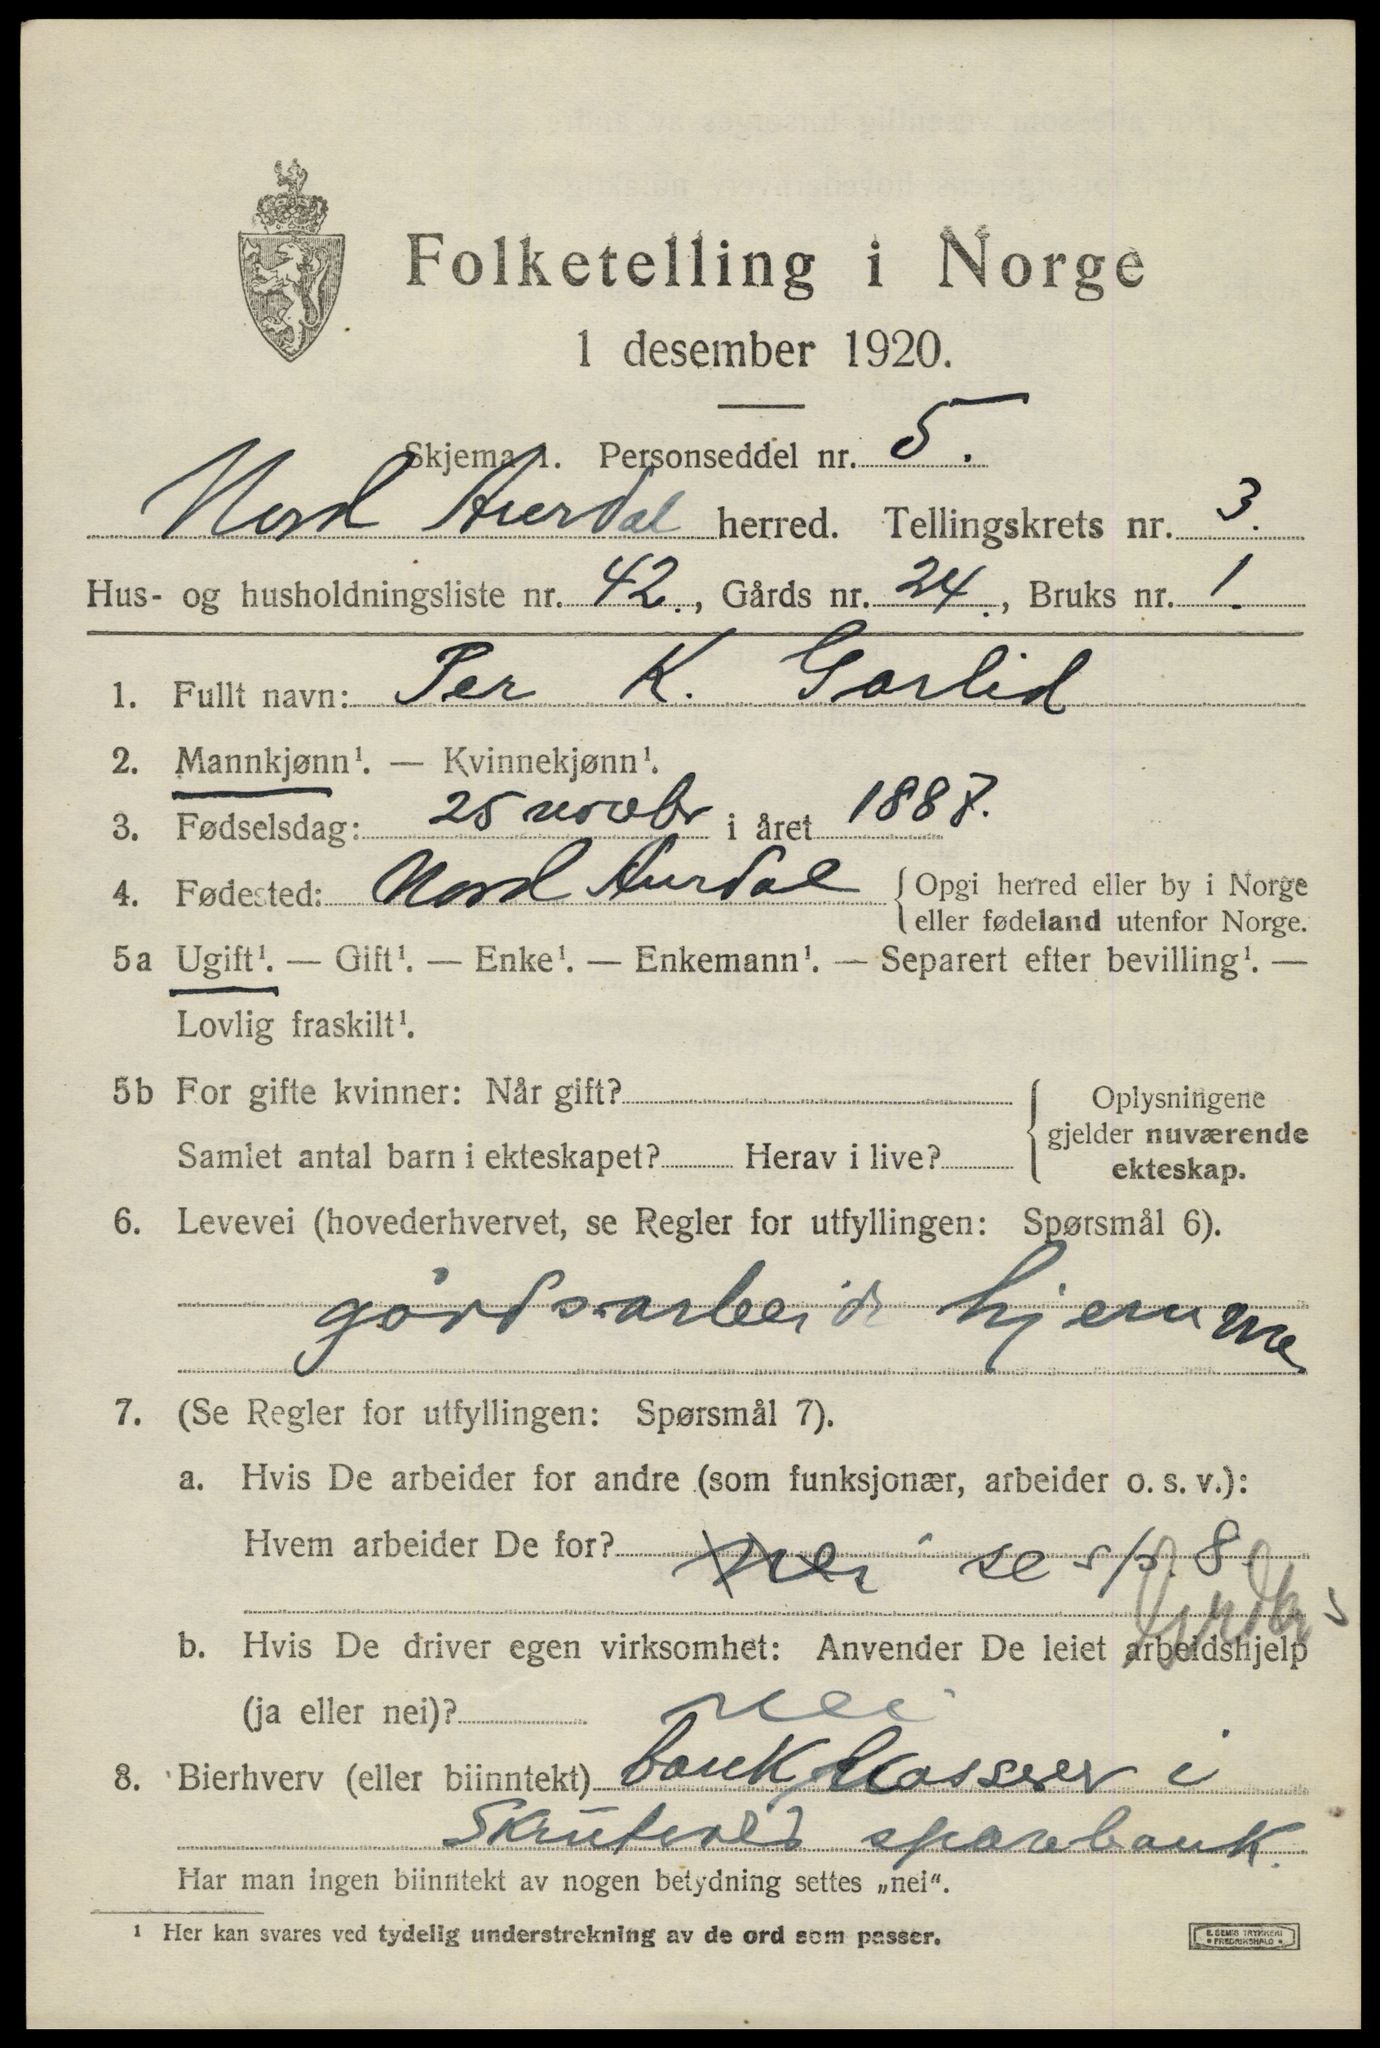 Folketelling i Norge
1 desember 1920.
Skjema 1. Personseddel nr. 5.
Nord Aurdal herred. Tellingskrets nr. 3.
Hus- og husholdningsliste nr. 42., Gårds nr. 24., Bruks nr. 1.
1. Fullt navn: Per K. Garlid
2. Mannkjønn¹. — Kvinnekjønn¹.
3. Fødselsdag: 25 novebr i året 1887.
4. Fødested: Nord Aurdal { Opgi herred eller by i Norge
eller fødeland utenfor Norge.
5a Ugift¹. — Gift¹. — Enke¹. — Enkemann¹. — Separert efter bevilling¹. —
Lovlig fraskilt¹.
5b For gifte kvinner: Når gift? { Oplysningene
gjelder nuværende
Samlet antal barn i ekteskapet? Herav i live? ekteskap.
6. Levevei (hovederhvervet, se Regler for utfyllingen: Spørsmål 6).
gårdsarbeide hjemme
7. (Se Regler for utfyllingen: Spørsmål 7).
a. Hvis De arbeider for andre (som funksjonær, arbeider o. s. v.):
Hvem arbeider De for? nei se sp. 8.
b. Hvis De driver egen virksomhet: Anvender De leiet arbeidshjelp
(ja eller nei)? nei
8. Bierhverv (eller biinntekt) bankkasserer i
Skrutvold sparebank.
Har man ingen biinntekt av nogen betydning settes „nei“.
¹ Her kan svares ved tydelig understrekning av de ord som passer.
E. SEMS TRYKKERI
• FREDRIKSHALD •